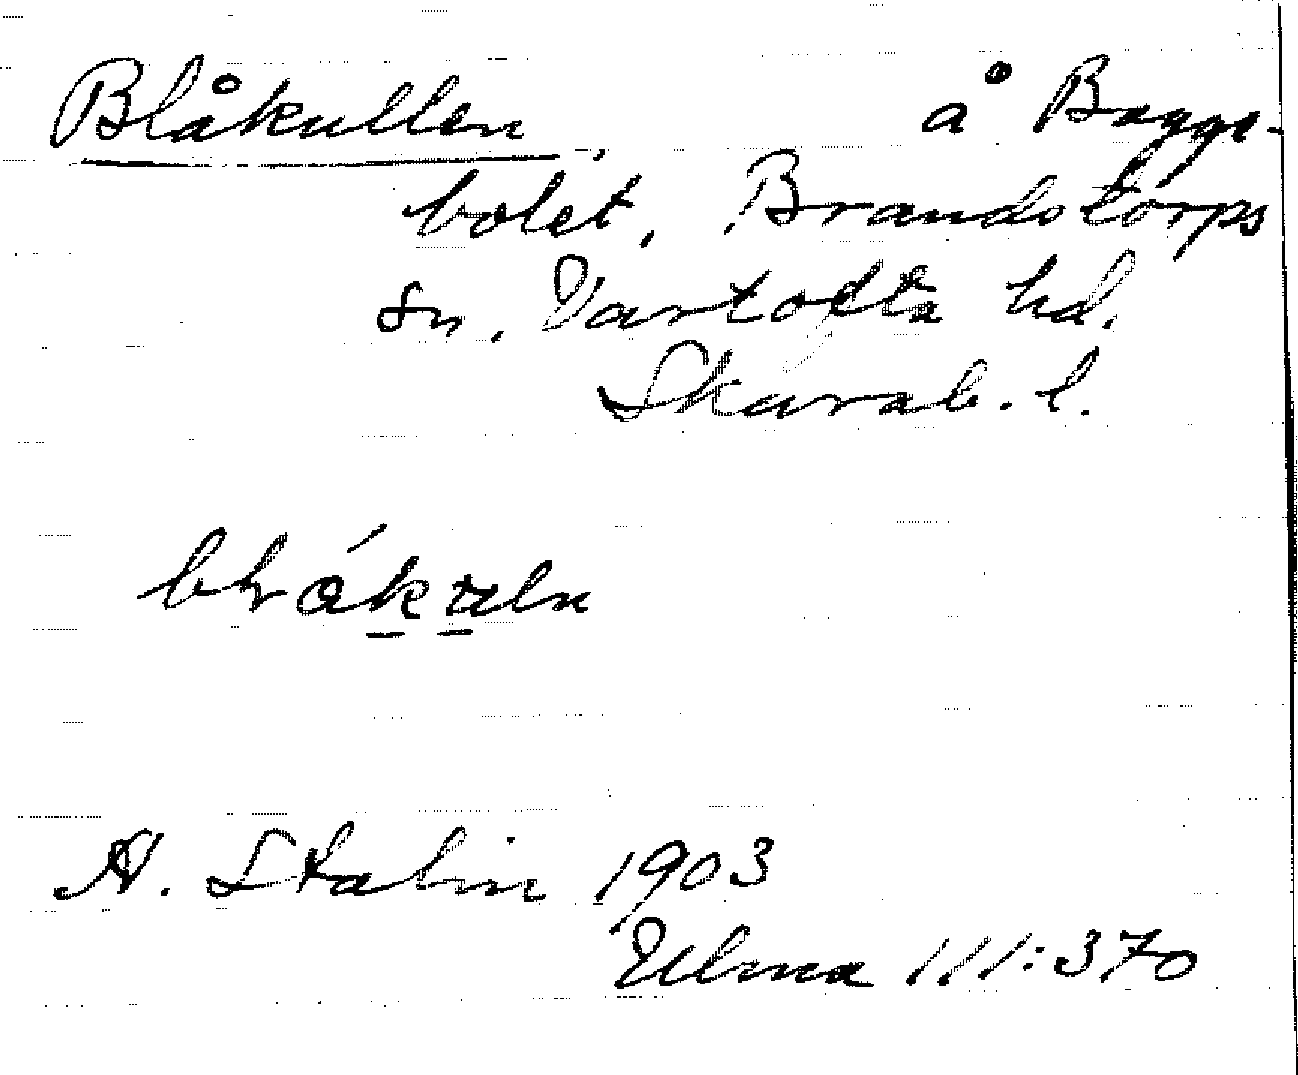 Blåkullen, å Bagge-
bolet, Brandstorps
sn. Vartofta hd.
Skarab. l.
A. Stalin 1903
Ulma 111:370